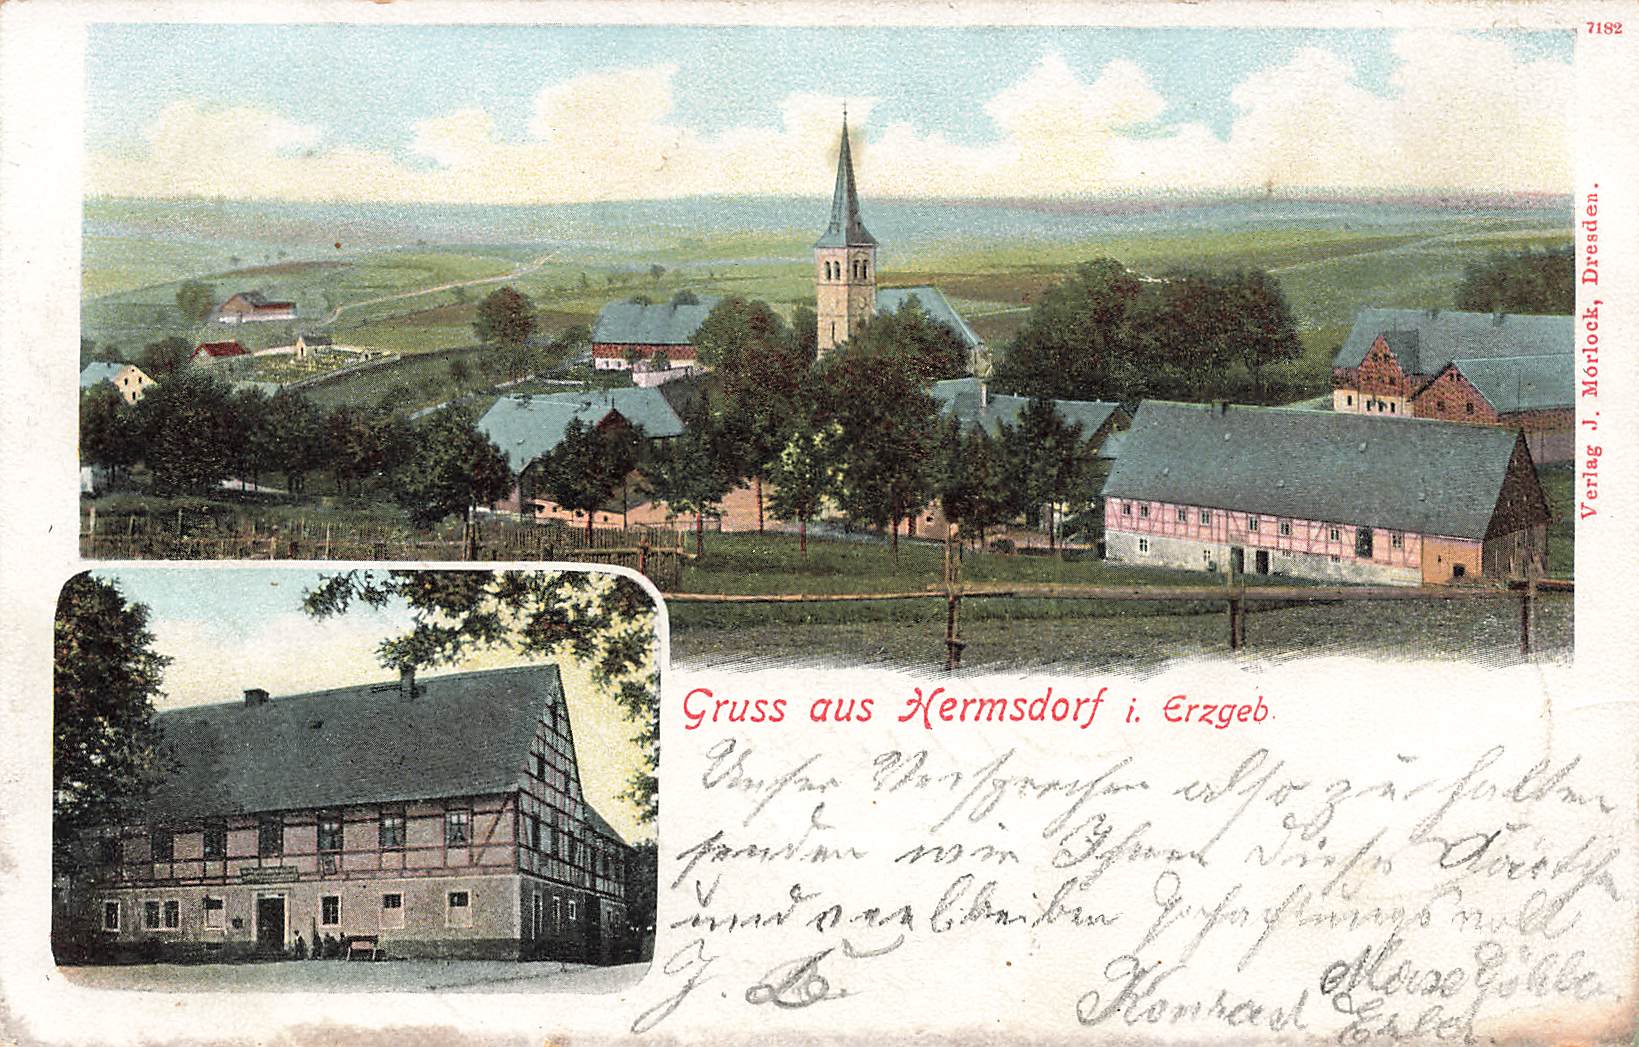 7182
Verlag J. Mörlock, Dresden.
Gruss aus Hermsdorf i. Erzgeb.
Unser Versprechen also zu halten
senden wir Ihnen diese
und verbleiben Hochachtungsvoll
Konrad